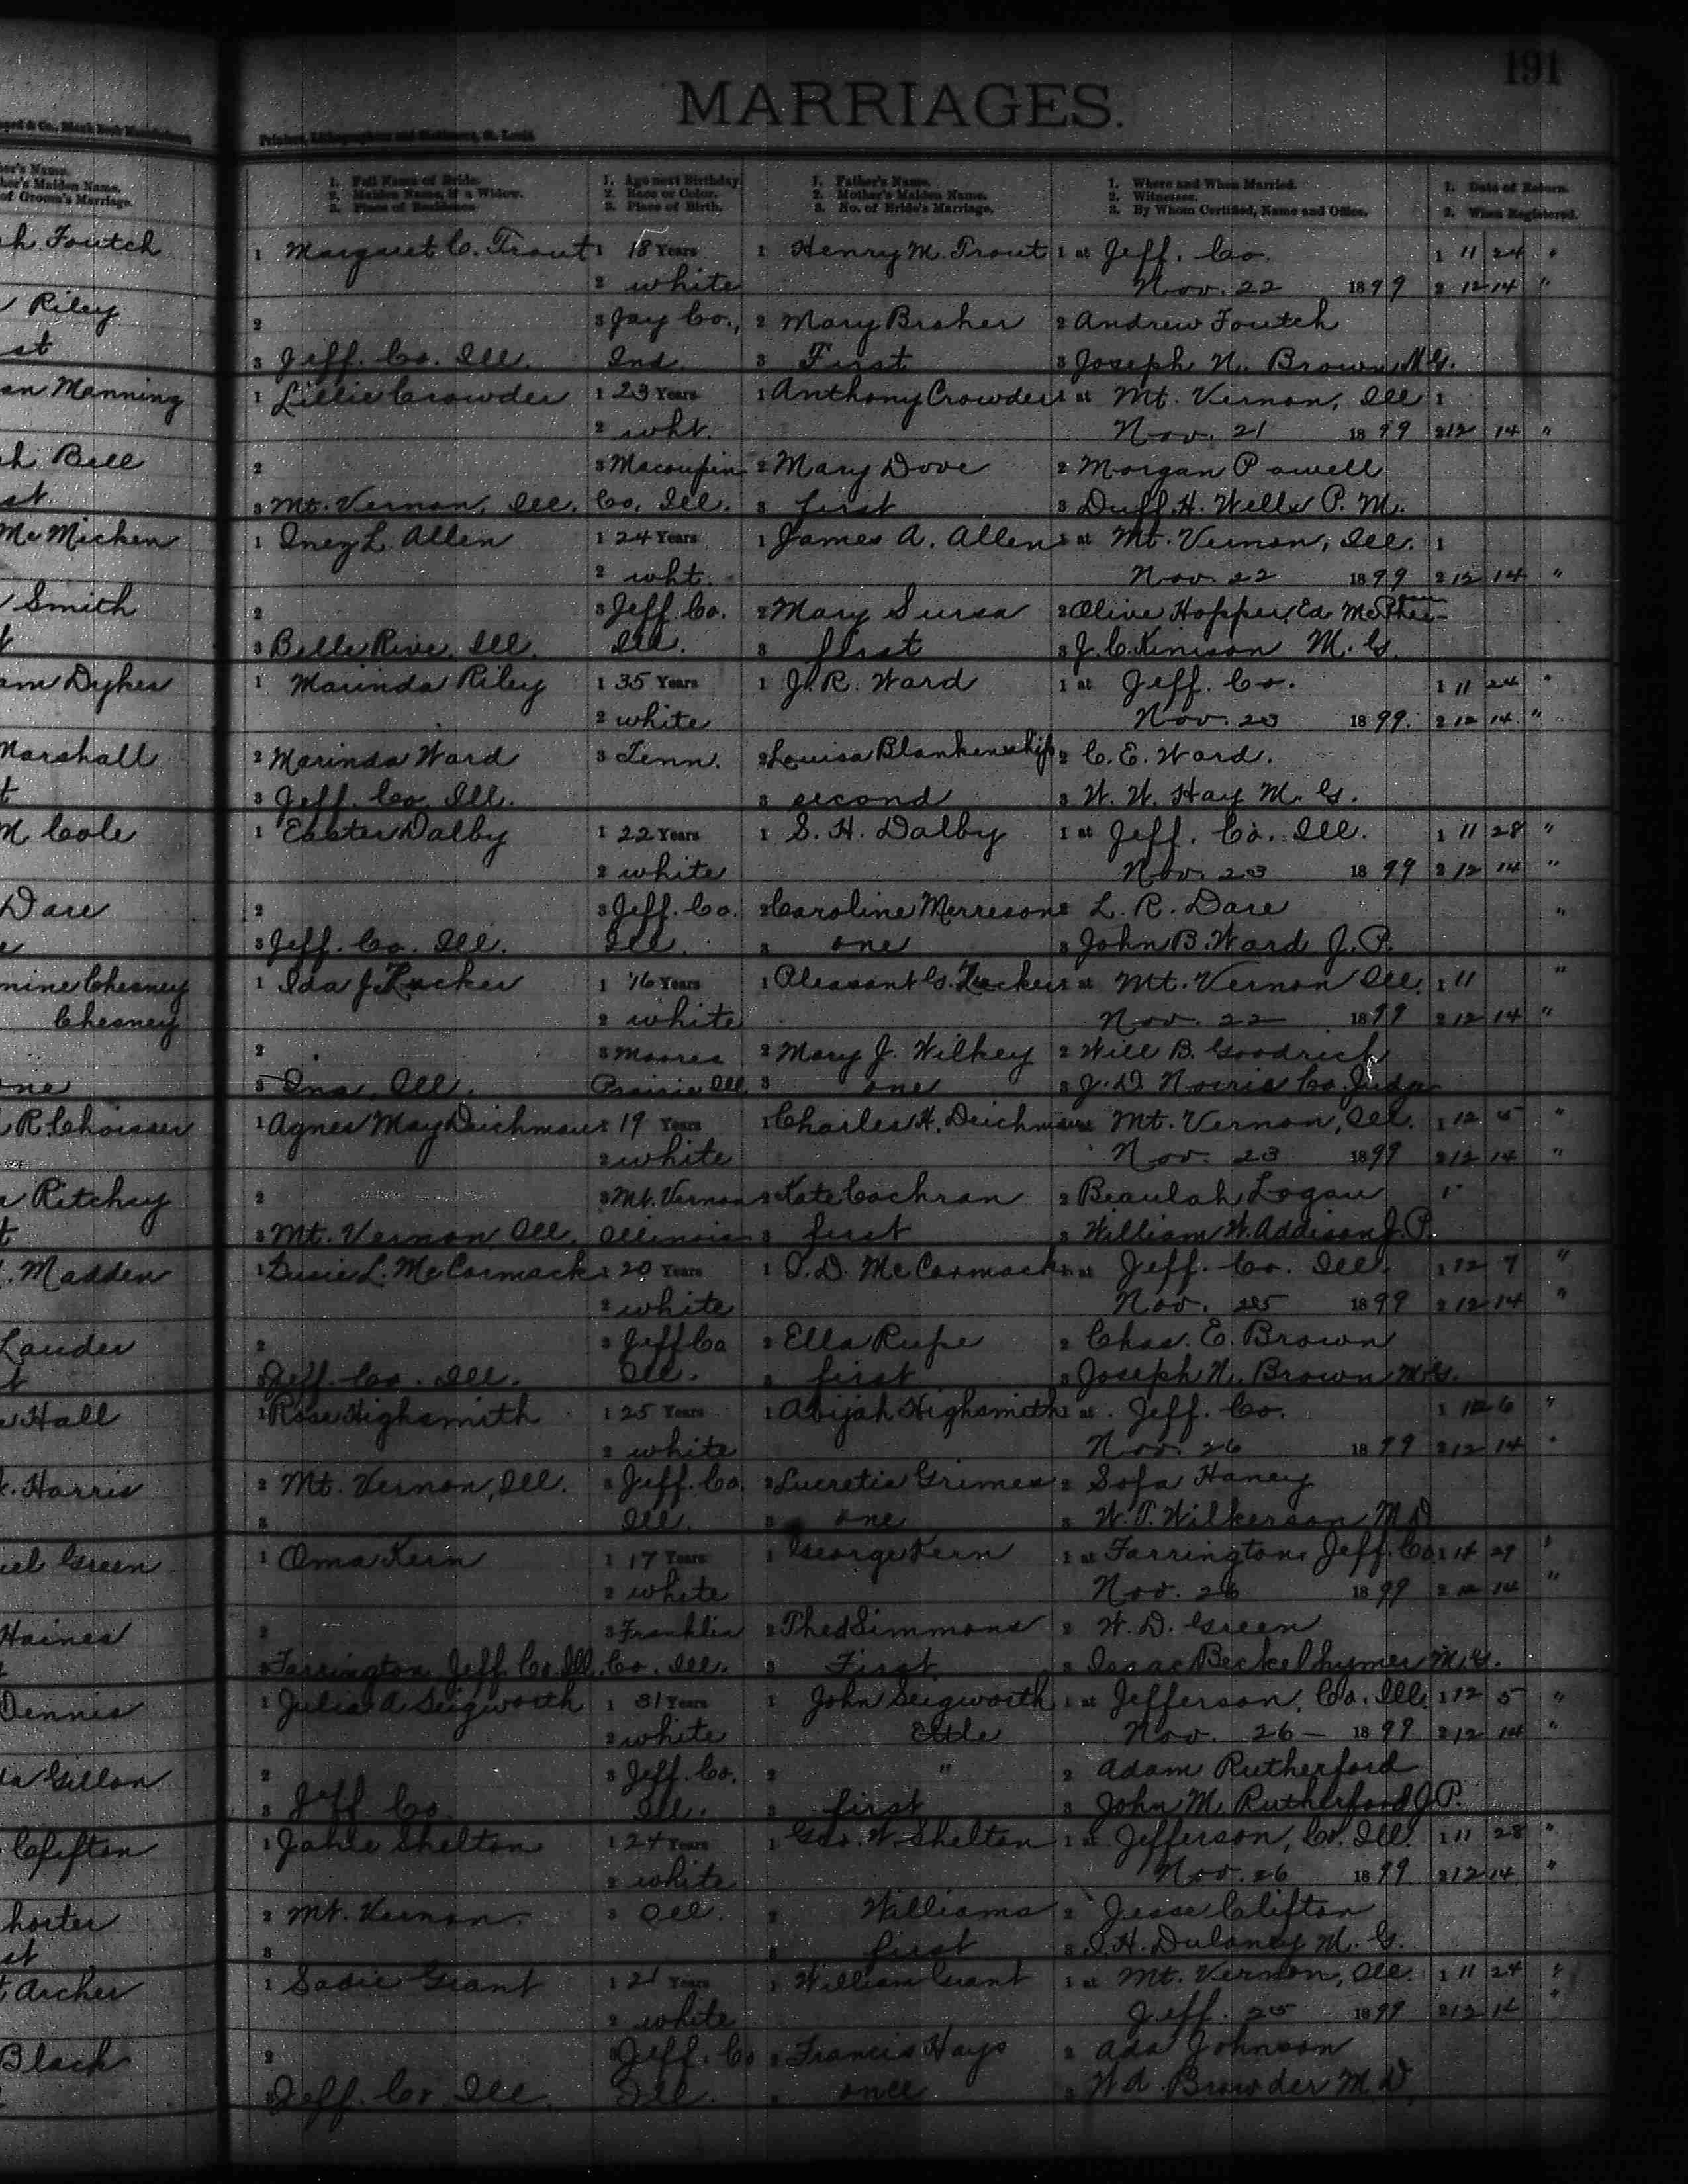 191
MARRIAGES.
Printers, Lithographers and Stationers, St. Louis.
1. Full Name of Bride. 1. Age next Birthday. 1. Father's Name. 1. Where and When Married. 1. Date of Return.
2. Maiden Name, if a Widow. 2. Race or Color. 2. Mother's Maiden Name. 2. Witnesses.
3. Place of Residence. 3. Place of Birth. 3. No. of Bride's Marriage. 3. By Whom Certified, Name and Office. 2. When Registered.
h Foutch 1 Margaret C. Trout 1 18 Years 1 Henry M. Trout 1 at Jeff. Co. 1 11 24 "
2 white Nov. 22 1899 2 12 14 "
Riley 2 3 Jay Co., 2 Mary Broher 2 Andrew Foutch
st 3 Jeff. Co. Ill. Ind. 3 First 3 Joseph N. Brown M.G.
an Manning 1 Lillie Crowder 1 23 Years 1 Anthony Crowder 1 at Mt. Vernon, Ill 1
2 wht. Nov. 21 1899 2 12 14 "
h Bell 2 3 Macoupin 2 Mary Dove 2 Morgan Powell
st 3 Mt. Vernon, Ill. Co. Ill. 3 first 3 Duff H. Wells P. M.
McMicken 1 Inez L. Allen 1 24 Years 1 James A. Allen 1 at Mt. Vernon, Ill. 1
2 wht. Nov. 22 1899 2 12 14 "
Smith 2 3 Jeff. Co. 2 Mary Sursa 2 Olive Hopper, Ed
3 Belle Rive, Ill. Ill. 3 first 3 J. C. Kinison M. G.
am Dykes 1 Marinda Riley 1 35 Years 1 J. R. Ward 1 at Jeff. Co. 1 11 24 "
2 white Nov. 23 1899. 2 12 14 "
Marshall 2 Marinda Ward 3 Tenn. 2 Louisa Blankenship 2 C. E. Ward.
t 3 Jeff. Co. Ill. 3 second 3 W. W. Hay M. G.
M Cole 1 Easter Dalby 1 22 Years 1 S. H. Dalby 1 at Jeff. Co. Ill. 1 11 28 "
2 white Nov. 23 1899 2 12 14 "
Dare 2 3 Jeff. Co. 2 Caroline Merreson 2 L. R. Dare "
e 3 Jeff. Co. Ill. Ill. 3 one 3 John B. Ward J. P.
mine Chesney 1 Ida J. Tucker 1 16 Years 1 Pleasant G. Tucker 1 at Mt. Vernon Ill. 1 11 "
Chesney 2 white Nov. 22 1899 2 12 14 "
2 3 Moores 2 Mary J. Wilkey 2 Will B. Goodrich
one 3 Ina, Ill. Prairie Ill. 3 one 3 J. D. Norris Co. Judge
R. Choisser 1 Agnes May Deichman 1 19 Years 1 Charles H. Deichman 1 at Mt. Vernon, Ill. 1 12 5 "
2 white Nov. 23 1899 2 12 14 "
Ritchey 2 3 Mt. Vernon 2 Kate Cochran 2 Beaulah Logan
t 3 Mt. Vernon Ill. Illinois 3 first 3 William W. Addison J. P.
Madden 1 Susie L. McCormack 1 20 Years 1 I. D. McCormack 1 at Jeff. Co. Ill. 1 12 7 "
2 white Nov. 25 1899 2 12 14 "
Lander 2 3 Jeff Co 2 Ella Rupe 2 Chas. E. Brown
t 3 Jeff. Co. Ill. Ill. 3 first 3 Joseph N. Brown M.G.
Hall 1 Rose Highsmith 1 25 Years 1 Abijah Highsmith 1 at Jeff. Co. 1 12 6 "
2 white Nov. 26 1899 2 12 14 "
Harris 2 Mt. Vernon, Ill. 3 Jeff. Co. 2 Lucretia Grimes 2 Sofa Haney
3 Ill. 3 one 3 W. P. Wilkerson
iel Green 1 Oma Kern 1 17 Years 1 George Kern 1 at Farrington, Jeff. Co. 1 11 29 "
2 white Nov. 26 1899 2 12 14 "
Haines 2 3 Franklin 2 Simmons 2 W. D. Green
3 Farrington Jeff. Co. Ill. Co. Ill. 3 First 3 Isaac Beckelhymer M.G.
Dennis 1 Julia A Seigworth 1 31 Years 1 John Seigworth 1 at Jefferson, Co. Ill. 1 12 5 "
2 white Ettle Nov. 26 — 1899 2 12 14 "
Gillon 2 3 Jeff. Co. 2 " 2 Adam Rutherford
3 Jeff Co Ill. 3 first 3 John M. Rutherford J.P.
Clifton 1 Shelton 1 24 Years 1 Geo. W. Shelton 1 at Jefferson, Co. Ill. 1 11 28 "
2 white Nov. 26 1899 2 12 14 "
horter 2 Mt. Vernon. 3 Ill. 2 Williams 2 Jesse Clifton
st 3 3 first 3 Dulaney M. G.
Archer 1 Sadie Grant 1 21 Years 1 William Grant 1 at Mt. Vernon, Ill. 1 11 24 "
2 white Jeff. 25 1899 2 12 14 "
Black 2 3 Jeff. Co 2 Francis Hays 2 Ada Johnson
3 Jeff. Co. Ill. Ill. 3 once 3 Browder